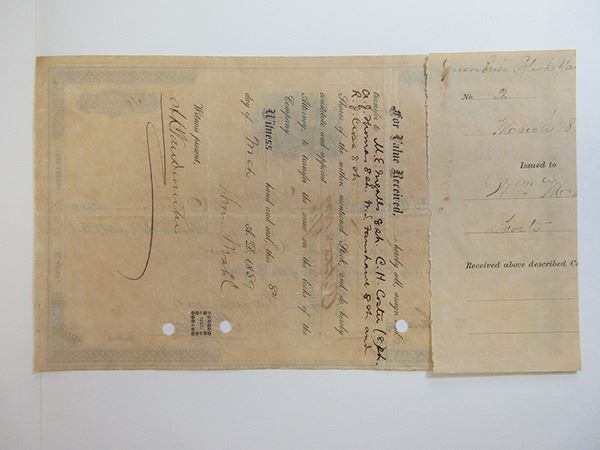 For Value Received, hereby sell, assign and
transfer to M. E. Ingalls 8 sh. C. H. Coster 18 sh.
A. J. Thomas 8 sh. W. S. Fanshawe 8 sh and
R. J. Cross 8 sh
Share of the within mentioned Stock, and do hereby
constitute and appoint
Attorney, to transfer the same on the books of the
Company.
Witness hand and seal, this 8th
day of Mch A. D. 1889
Wm. Mahl
Witness present,
SEAL
No. 2
March 8
Issued to
Wm. M
Forty
Received above described Ce